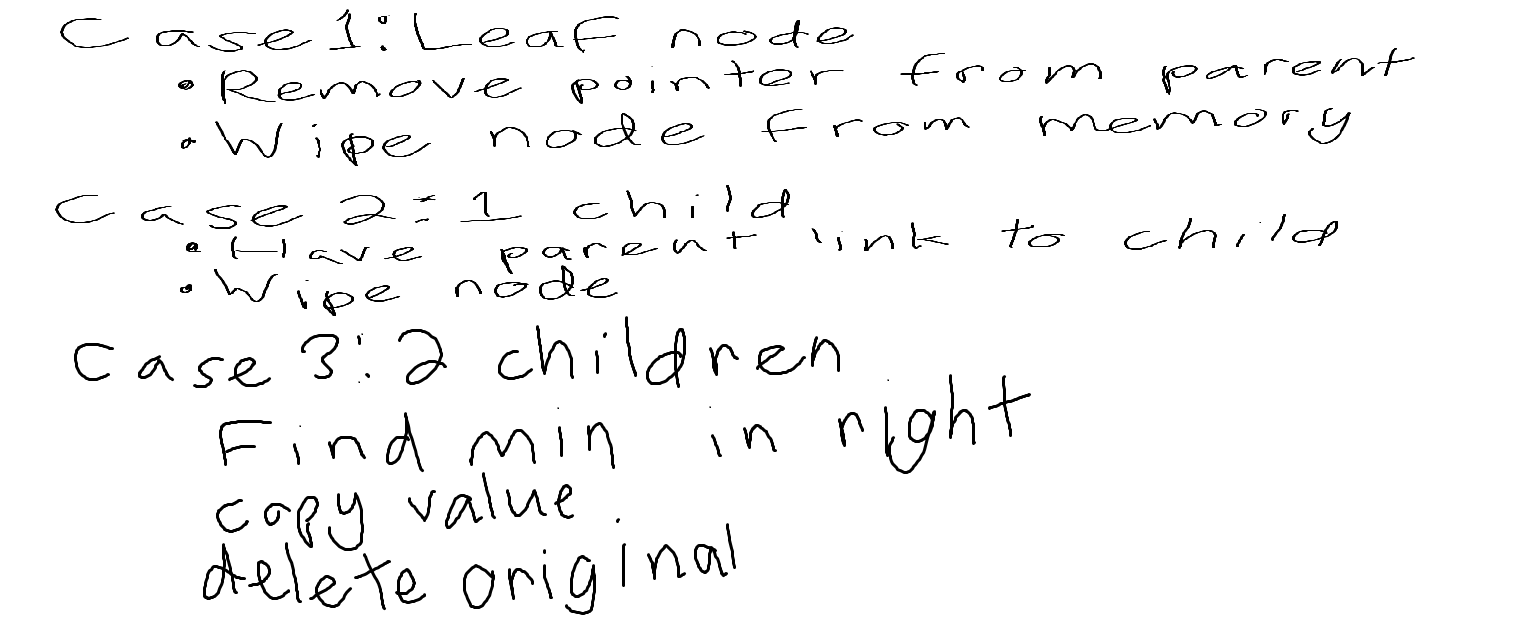 Case 1: Leaf node
• Remove pointer from parent
• Wipe node from memory
Case 2: 1 child
• Have parent link to child
• Wipe node
Case 3: 2 children
Find min in right
copy value
delete original